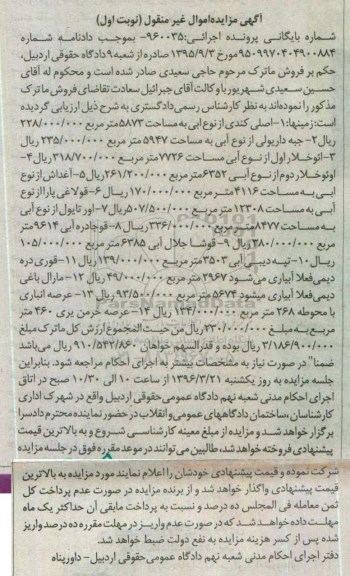 آگهی مزایده اموال غیر منقول (نوبت اول)
شماره بایگانی پرونده اجرائی:۹۶۰۰۳۵- بموجب دادنامه شماره
۹۵۰۹۹۷۰۴۰۴۹۰۰۸۸۴ مورخ ۱۳۹۵/۹/۳ صادره از شعبه ۹ دادگاه حقوقی اردبیل،
حکم بر فروش ماترک مرحوم حاجی سعیدی صادر شده است و محکوم له آقای
حسین سعیدی شهرپور با وکالت آقای جبرائیل سعادت تقاضای فروش ماترک
مذکور را نموده اند به نظر کارشناس رسمی دادگستری به شرح ذیل ارزیابی گردیده
است: زمینها: ۱- اصلی کندی از نوع ابی به مساحت ۵۸۷۳ متر مربع ۲۲۸/۰۰۰/۰۰۰
ریال ۲- جبه داریولی از نوع آبی به مساحت ۵۹۴۷ متر مربع ۲۳۵/۰۰۰/۰۰۰ ریال
۳- اتوخلار اول از نوع آبی مساحت ۷۷۲۶ متر مربع ۳۱۸/۷۰۰/۰۰۰ ریال ۴-
اوتوخلار دوم از نوع آبی ۶۳۵۲ متر مربع ۲۶۱/۲۰۰/۰۰۰ ریال ۵- آغداش از نوع
ابی به مساحت ۴۱۱۶ متر مربع ۱۷۰/۰۰۰/۰۰۰ ریال ۶- قولاغی پارا از نوع
آبی به مساحت ۱۲۳۰۸ متر مربع ۵۰۷/۵۰۰/۰۰۰ ریال ۷- اور تایول از نوع آبی
به مساحت ۸۴۷۷ متر مربع ۳۳۶/۰۰۰/۰۰۰ ریال ۸- قوجادره آبی ۹۶۱۴ متر
مربع ۳۸۰/۰۰۰/۰۰۰ ریال ۹- قوشا جلال آبی ۶۳۸۵ متر مربع ۱۰۵/۰۰۰/۰۰۰
ریال ۱۰- تپه دیبی آبی ۳۵۰۳ متر مربع ۱۳۹/۰۰۰/۰۰۰ ریال ۱۱- قوری دره
دیمی فعلا آبیاری می شود ۲۹۶۷ متر مربع ۴۹/۰۰۰/۰۰۰ ریال ۱۲- مارال باغی
دیمی فعلا آبیاری میشود ۵۶۷۴ متر مربع ۹۳/۵۰۰/۰۰۰ ریال ۱۳- عرصه انباری
با محوطه ۲۶۸ متر مربع ۱۳۴/۰۰۰/۰۰۰ ریال ۱۴- عرصه خرمن یری ۴۶۰ متر
مربع به مبلغ ۲۳۰/۰۰۰/۰۰۰ ریال من حیث المجموع ارزش کل ماترک مبلغ
۳/۱۸۶/۹۰۰/۰۰۰ ریال بوده و قدرالسهم خواهان ۹۱۰/۵۴۲/۸۶۰ ریال می باشد
ضمنا" در صورت نیاز به مشخصات بیشتر به اجرای احکام مراجعه شود. بنابراین
جلسه مزایده به روز یکشنبه ۱۳۹۶/۳/۲۱ از ساعت ۱۰ الی ۱۰/۳۰ صبح در اتاق
اجرای احکام مدنی شعبه نهم دادگاه عمومی حقوقی اردبیل واقع در شهرک اداری
کارشناسان، ساختمان دادگاههای عمومی و انقلاب در حضور نماینده محترم دادسرا
برگزار خواهد شد و مزایده از مبلغ معینه کارشناسی شروع و به بالاترین قیمت
پیشنهادی فروخته خواهد شد، طالبین می توانند در موعد مقرره فوق در جلسه مزایده
شرکت نموده و قیمت پیشنهادی خودشان را اعلام نمایند مورد مزایده به بالاترین
قیمت پیشنهادی واگذار خواهد شد و از برنده مزایده در صورت عدم پرداخت کل
ثمن معامله فی المجلس ده درصد و نسبت به پرداخت مابقی آن حداکثر یک ماه
مهلت داده خواهد شد که در صورت عدم واریز در مهلت مقرره ده درصد واریز
شده پس از کسر هزینه مزایده به نفع دولت ضبط خواهد شد.
دفتر اجرای احکام مدنی شعبه نهم دادگاه عمومی حقوقی اردبیل- داورپناه